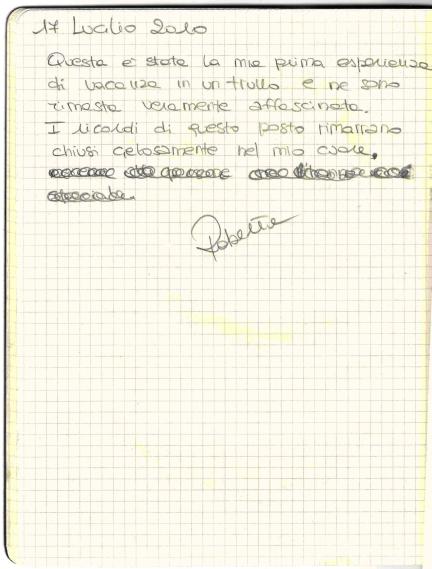 17 Luglio 2010
Questa è stata la mia prima esperienza
di vacanza in un trullo e ne sono
rimasta veramente affascinata.
I ricordi di questo posto rimarrano
chiusi gelosamente nel mio cuore,
Roberta